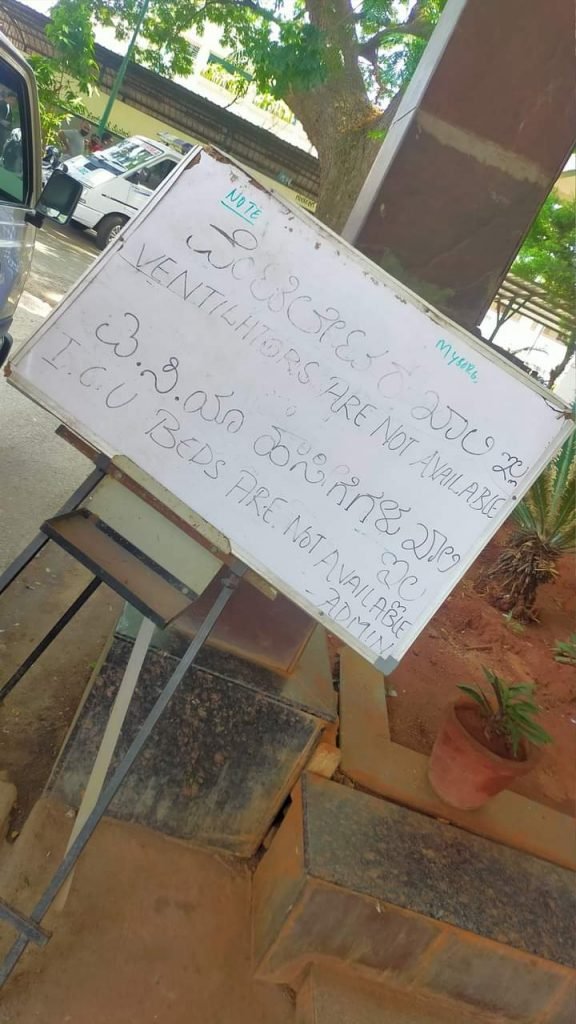 NOTE
MYSORE.
ವೆಂಟಿಲೇಟರ್ ಖಾಲಿ ಇಲ್ಲ
VENTILATORS ARE NOT AVAILABLE
ಐ.ಸಿ.ಯೂ ಹಾಸಿಗೆಗಳು ಖಾಲಿ
ಇಲ್ಲ
I.C.U BEDS ARE NOT AVAILABLE
- ADMIN